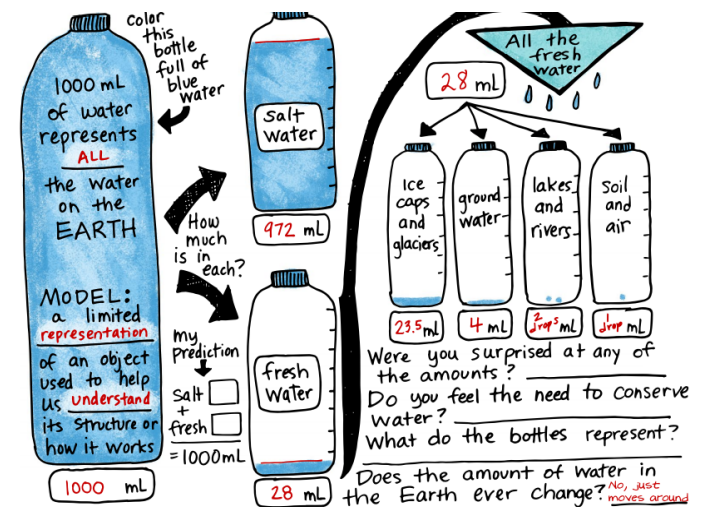 color
this
bottle
full of
blue
water
1000 mL
of water
represents
ALL
the water
on the
EARTH
MODEL:
a limited
representation
of an object
used to help
us understand
its structure or
how it works
1000 mL
How
much
is in
each?
my
prediction
salt
+
fresh
= 1000mL
salt
water
972 mL
fresh
water
28 mL
All the
fresh
water
28 mL
Ice
caps
and
glaciers
23.5 mL
ground
water
4 mL
lakes
and
rivers
2 drops mL
soil
and
air
1 drop mL
Were you surprised at any of
the amounts?
Do you feel the need to conserve
water?
What do the bottles represent?
Does the amount of water in
the Earth ever change? No, just
moves around